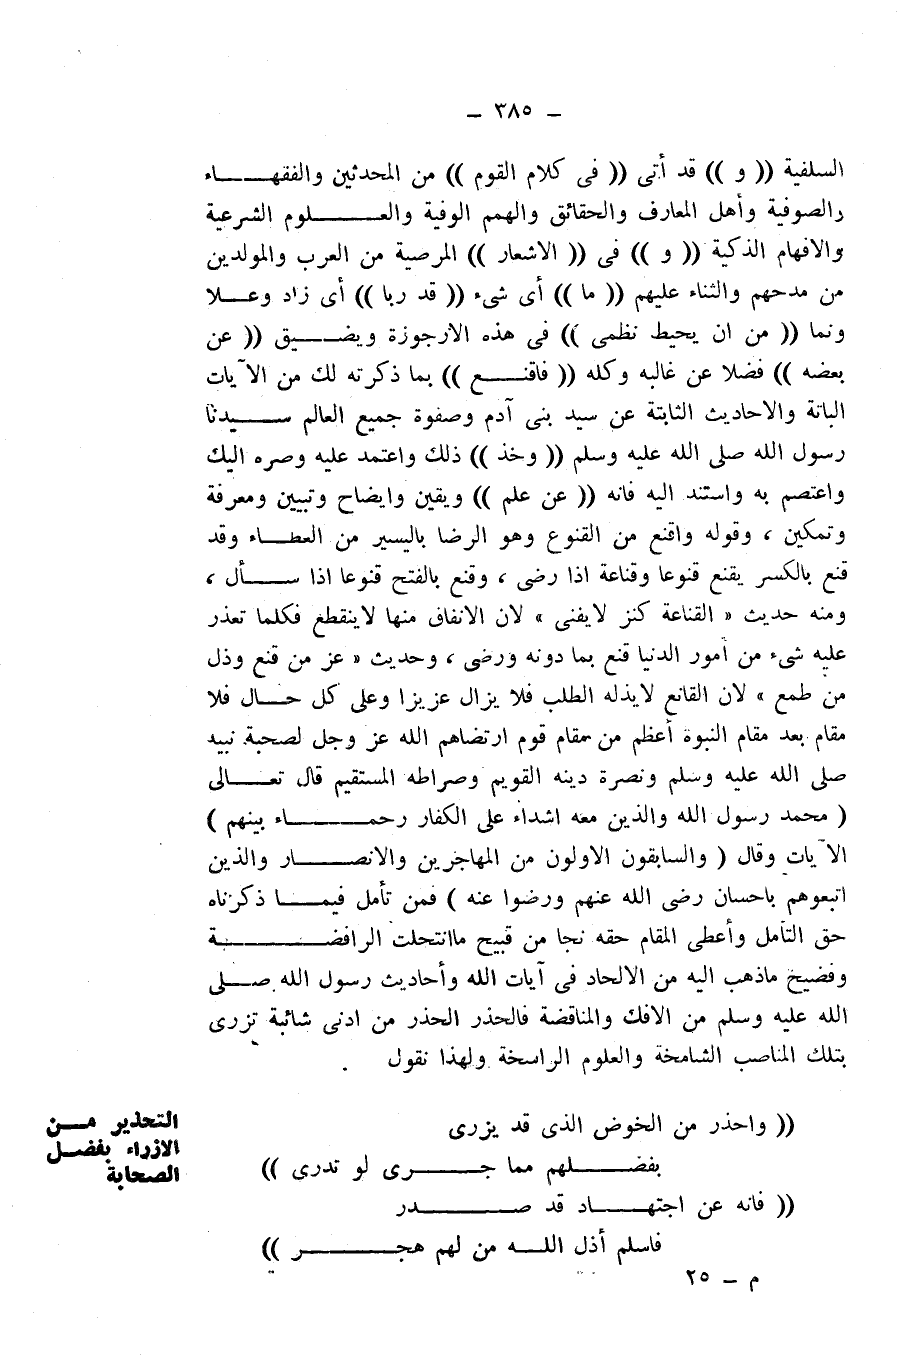 – ٣٨٥ –
السلفية (( و )) قد أتى (( فى كلام القوم )) من المحدثين والفقهاء
والصوفية وأهل المعارف والحقائق والهمم الوفية والعلوم الشرعية
والافهام الذكية (( و )) فى (( الاشعار )) المرصية من العرب والمولدين
من مدحهم والثناء عليهم (( ما )) أى شىء (( قد ربا )) أى زاد وعلا
ونما (( من ان يحيط نظمى )) فى هذه الارجوزة ويضيق (( عن
بعضه )) فضلا عن غالبه وكله (( فاقنع )) بما ذكرته لك من الآيات
الباتة والاحاديث الثابتة عن سيد بنى آدم وصفوة جميع العالم سيدنا
رسول الله صلى الله عليه وسلم (( وخذ )) ذلك واعتمد عليه وصره اليك
واعتصم به واستند اليه فانه (( عن علم )) ويقين وايضاح وتبيين ومعرفة
وتمكين ، وقوله واقنع من القنوع وهو الرضا باليسير من العطاء وقد
قنع بالكسر يقنع قنوعا وقناعة اذا رضى ، وقنع بالفتح قنوعا اذا سأل ،
ومنه حديث « القناعة كنز لايفنى » لان الانفاق منها لاينقطع فكلما تعذر
عليه شىء من أمور الدنيا قنع بما دونه ورضى ، وحديث « عز من قنع وذل
من طمع » لان القانع لايذله الطلب فلا يزال عزيزا وعلى كل حال فلا
مقام بعد مقام النبوة أعظم من مقام قوم ارتضاهم الله عز وجل لصحبة نبيه
صلى الله عليه وسلم ونصرة دينه القويم وصراطه المستقيم قال تعالى
( محمد رسول الله والذين معه اشداء على الكفار رحماء بينهم )
الآيات وقال ( والسابقون الاولون من المهاجرين والانصار والذين
اتبعوهم باحسان رضى الله عنهم ورضوا عنه ) فمن تأمل فيما ذكرناه
حق التأمل وأعطى المقام حقه نجا من قبيح ماانتحلت الرافضة
وفضيخ ماذهب اليه من الالحاد فى آيات الله وأحاديث رسول الله صلى
الله عليه وسلم من الافك والمناقضة فالحذر الحذر من ادنى شائبة تزرى
بتلك المناصب الشامخة والعلوم الراسخة ولهذا نقول .
التحذير من
الازراء بفضل
الصحابة
(( واحذر من الخوض الذى قد يزرى
بفضلهم مما جرى لو تدرى ))
(( فانه عن اجتهاد قد صدر
فاسلم أذل الله من لهم هجر ))
م – ٢٥